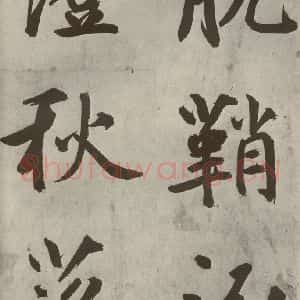 脱鞘
澄秋
Shufawang.CN